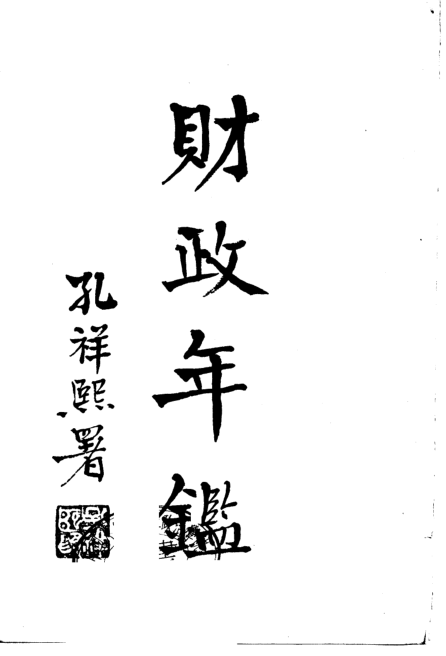 財政年鑑
孔祥熙署